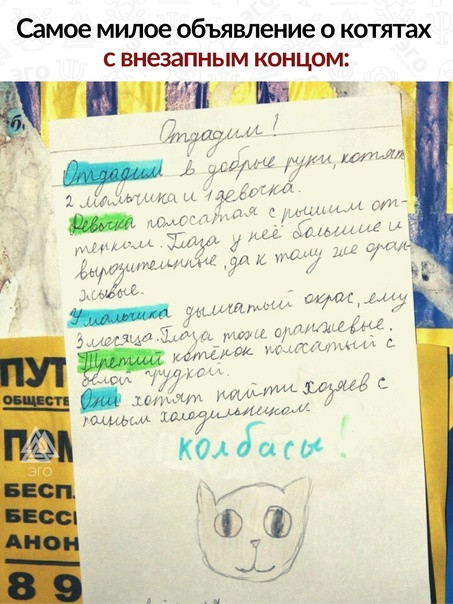 Самое милое объявление о котятах
с внезапным концом:
Отдадим!
Отдадим в добрые руки, котят
2 мальчика и 1 девочка.
Девочка полосатая с рыжим от-
тенком. Глаза у неё большие и
вырозительные, да к тому же оран-
жывые.
У мальчика дымчатый окрас, ему
3 месяца. Глаза тоже оранжевые.
Третий котёнок полосатый с
белой грудкой.
Они хотят найти хозяев с
полным холодильнеком
колбасы!
ПУТ
ОБЩЕСТВ
ПАМ
ЭГО
БЕСП
БЕССІ
АНОН
8 9